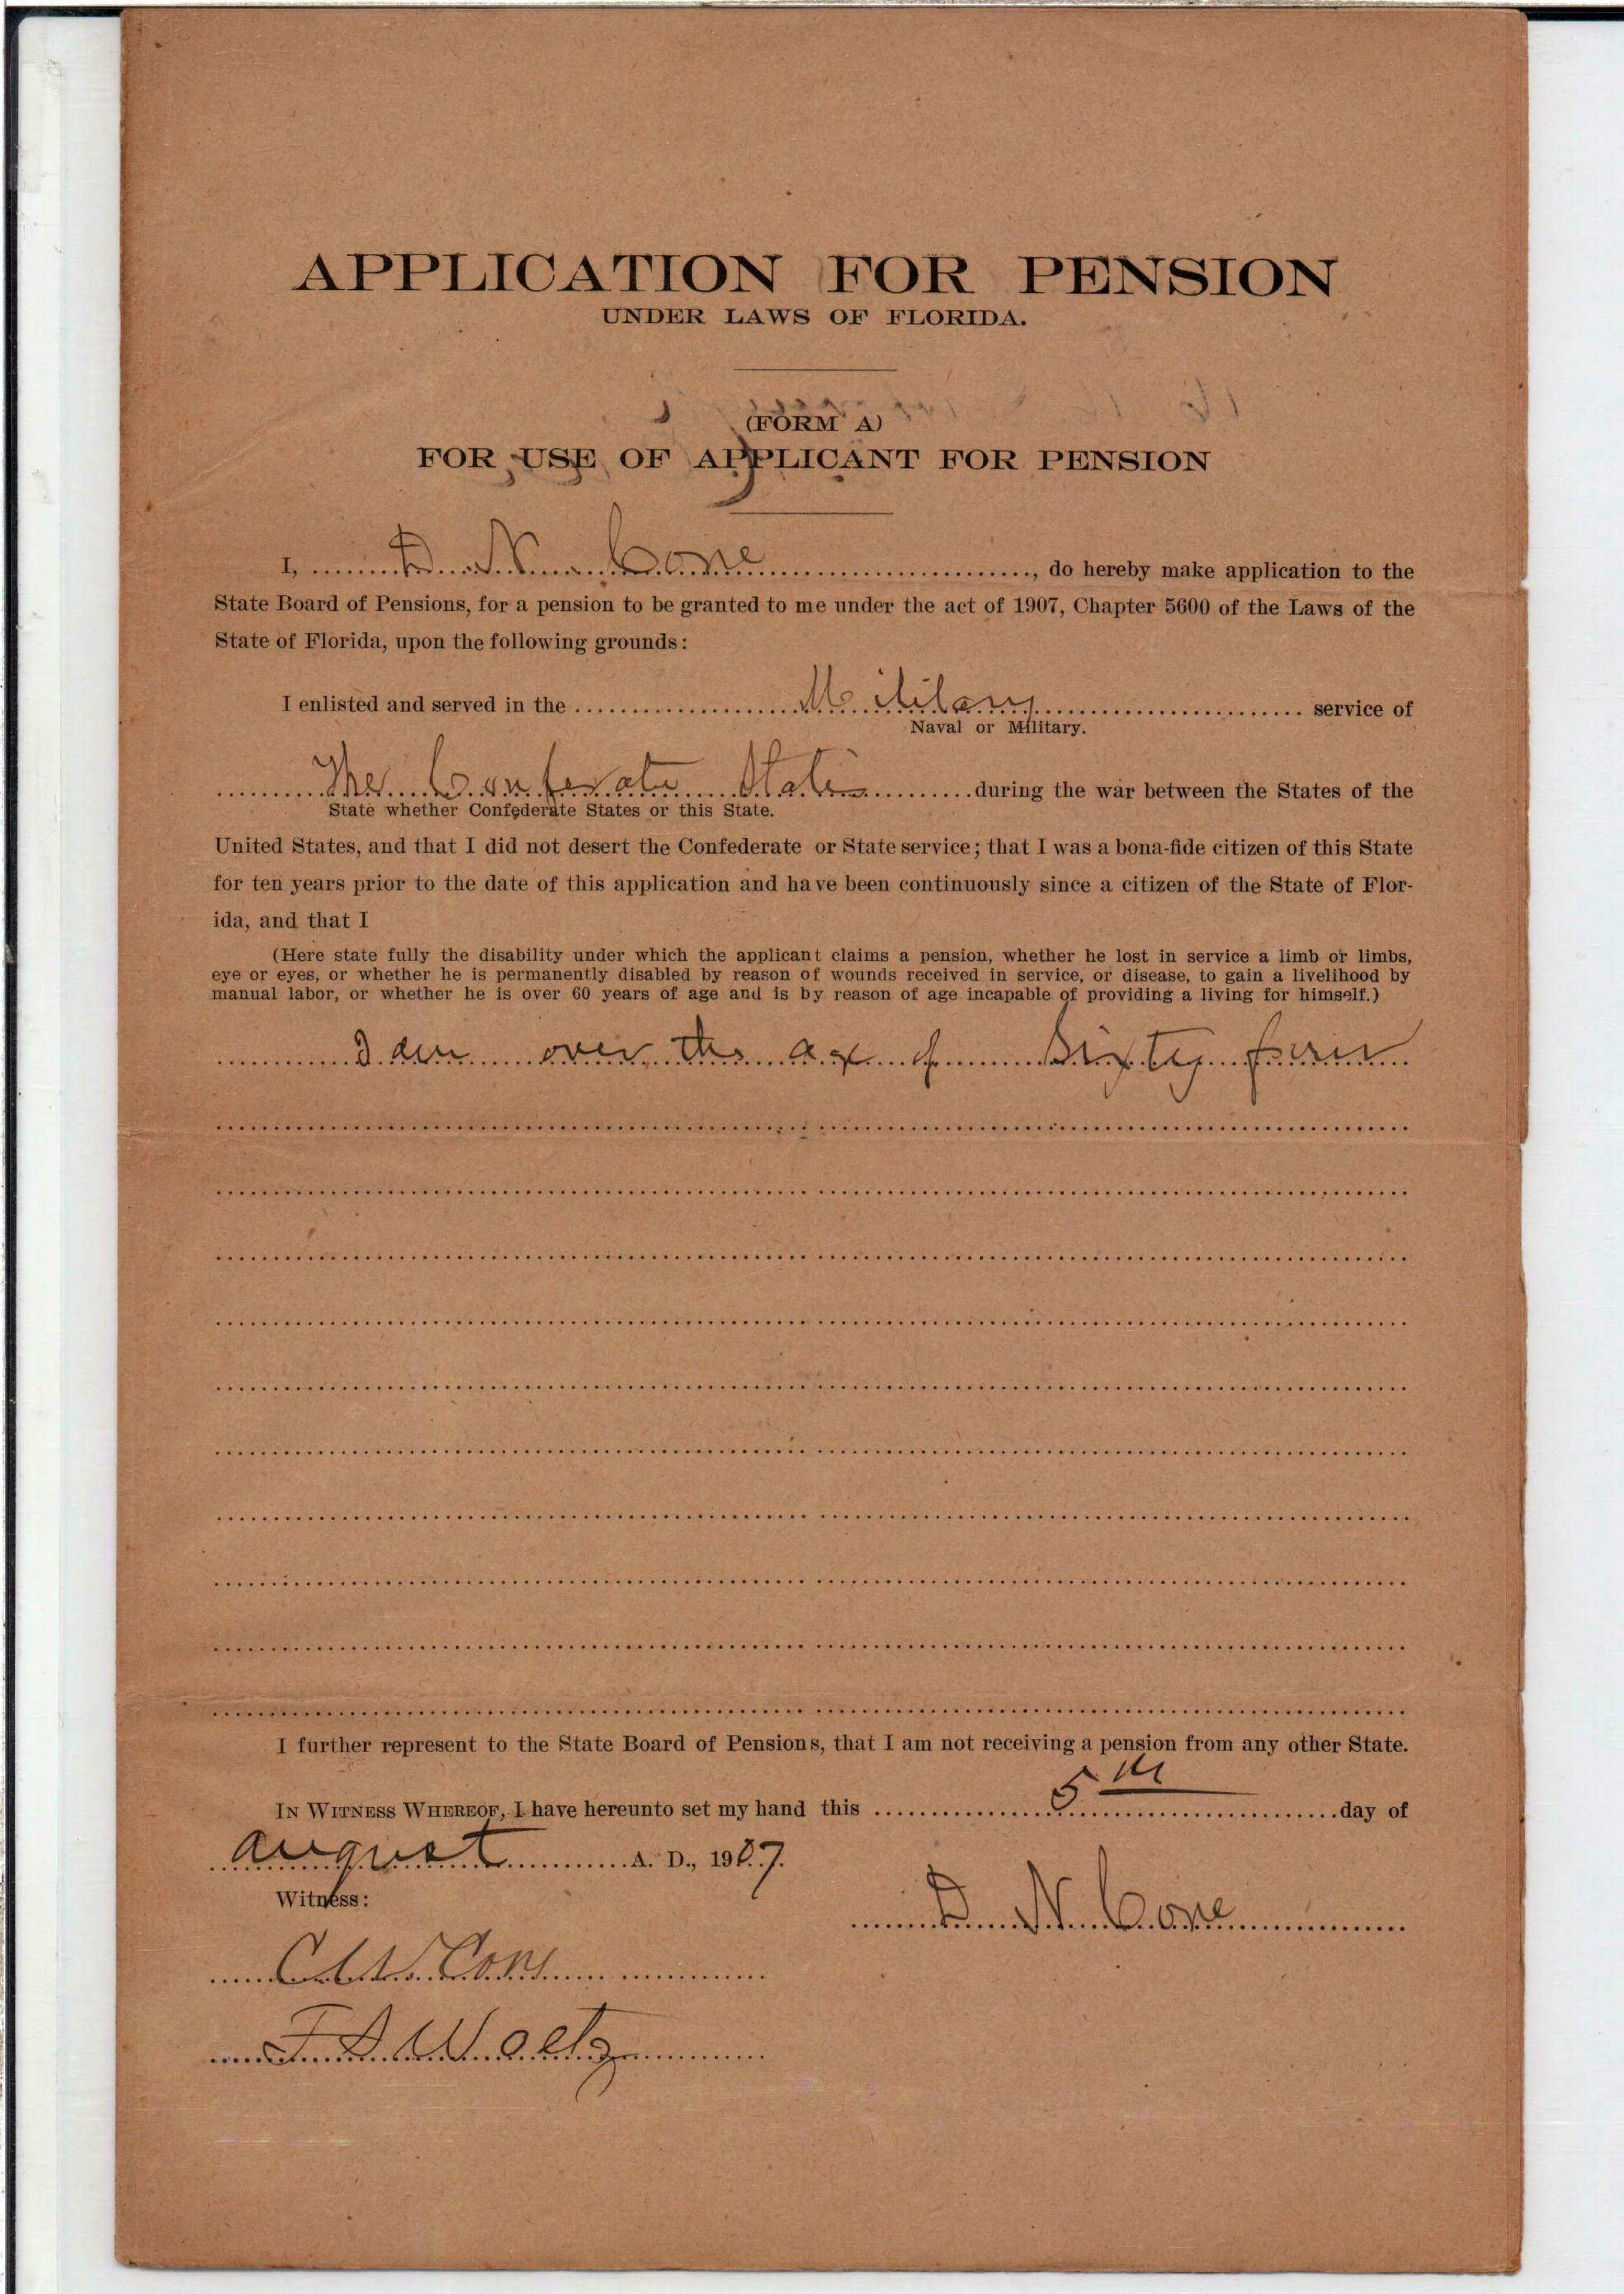 APPLICATION FOR PENSION
UNDER LAWS OF FLORIDA.
(FORM A)
FOR USE OF APPLICANT FOR PENSION
I, D. N. Cone, do hereby make application to the
State Board of Pensions, for a pension to be granted to me under the act of 1907, Chapter 5600 of the Laws of the
State of Florida, upon the following grounds:
I enlisted and served in the Military service of
Naval or Military.
The Conferate States during the war between the States of the
State whether Confederate States or this State.
United States, and that I did not desert the Confederate or State service; that I was a bona-fide citizen of this State
for ten years prior to the date of this application and have been continuously since a citizen of the State of Flor-
ida, and that I
(Here state fully the disability under which the applicant claims a pension, whether he lost in service a limb or limbs,
eye or eyes, or whether he is permanently disabled by reason of wounds received in service, or disease, to gain a livelihood by
manual labor, or whether he is over 60 years of age and is by reason of age incapable of providing a living for himself.)
I am over the age of Sixty four
I further represent to the State Board of Pensions, that I am not receiving a pension from any other State.
IN WITNESS WHEREOF, I have hereunto set my hand this 5th day of
August A. D., 1907.
Witness:
D N Cone
Cone
F A Woeltz